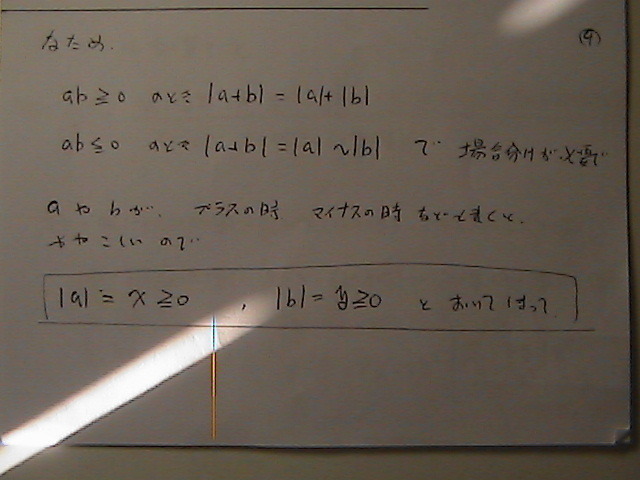 なため. (9)
ab≧0 のとき |a+b| = |a|+|b|
ab≦0 のとき |a+b| = |a|~|b| で 場合分けが必要で
a や b が、プラスの時 マイナスの時 などと書くと、
ややこしいので
|a| = x ≧0 , |b| = y≧0 とおいて